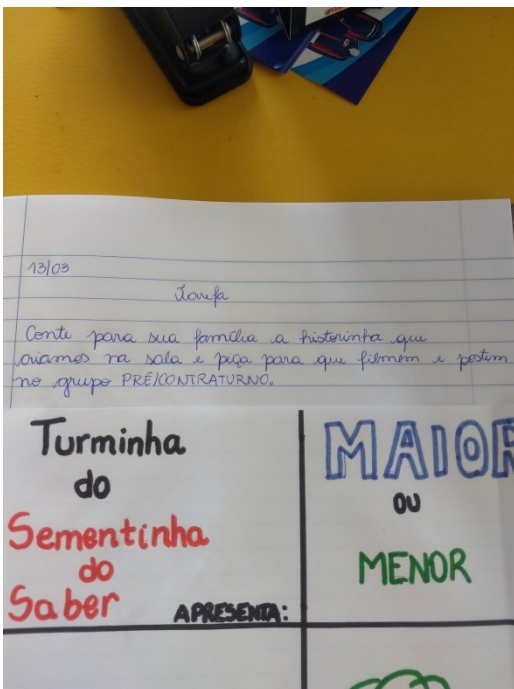 13/03
Tarefa
Conte para sua família a historinha que
criamos na sala e peça para que filmem e postem
no grupo PRÉ/CONTRATURNO.
Turminha
do
Sementinha
do
Saber
APRESENTA:
MAIOR
OU
MENOR